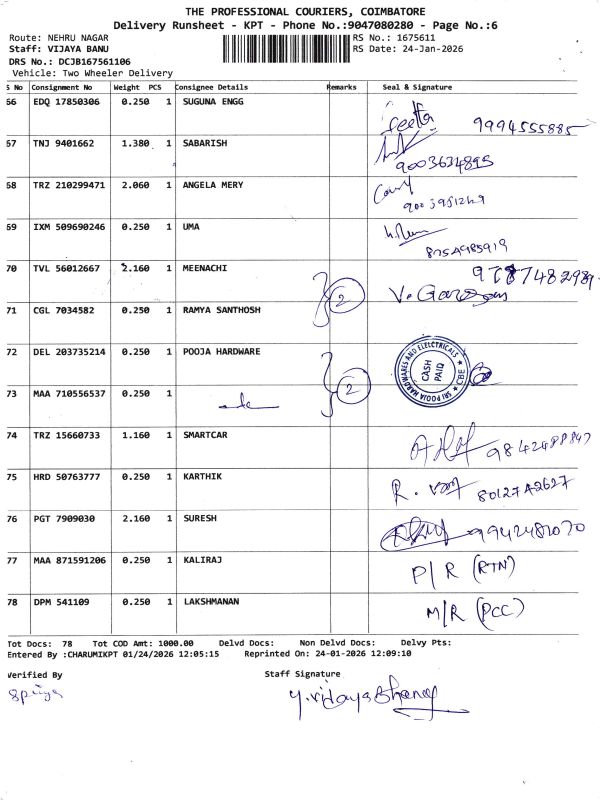 THE PROFESSIONAL COURIERS, COIMBATORE
Delivery Runsheet - KPT - Phone No.:9047080280 - Page No.:6
Route: NEHRU NAGAR
RS No.: 1675611
Staff: VIJAYA BANU
RS Date: 24-Jan-2026
DRS No.: DCJB167561106
Vehicle: Two Wheeler Delivery
S No Consignment No Weight PCS Consignee Details Remarks Seal & Signature
66 EDQ 17850306 0.250 1 SUGUNA ENGG
9994555885
67 TNJ 9401662 1.380 1 SABARISH
9003634895
68 TRZ 210299471 2.060 1 ANGELA MERY
69 IXM 509690246 0.250 1 UMA
8754985919
70 TVL 56012667 2.160 1 MEENACHI
71 CGL 7034582 0.250 1 RAMYA SANTHOSH
2
72 DEL 203735214 0.250 1 POOJA HARDWARE
SRI POOJA HARDWARES AND ELELCTRICALS CBE
CASH PAID
73 MAA 710556537 0.250 1
2
74 TRZ 15660733 1.160 1 SMARTCAR
75 HRD 50763777 0.250 1 KARTHIK
76 PGT 7909030 2.160 1 SURESH
77 MAA 871591206 0.250 1 KALIRAJ
P/R (RTN)
78 DPM 541109 0.250 1 LAKSHMANAN
M/R (PCC)
Tot Docs: 78 Tot COD Amt: 1000.00 Delvd Docs: Non Delvd Docs: Delvy Pts:
Entered By :CHARUMIKPT 01/24/2026 12:05:15 Reprinted On: 24-01-2026 12:09:10
Verified By
Staff Signature